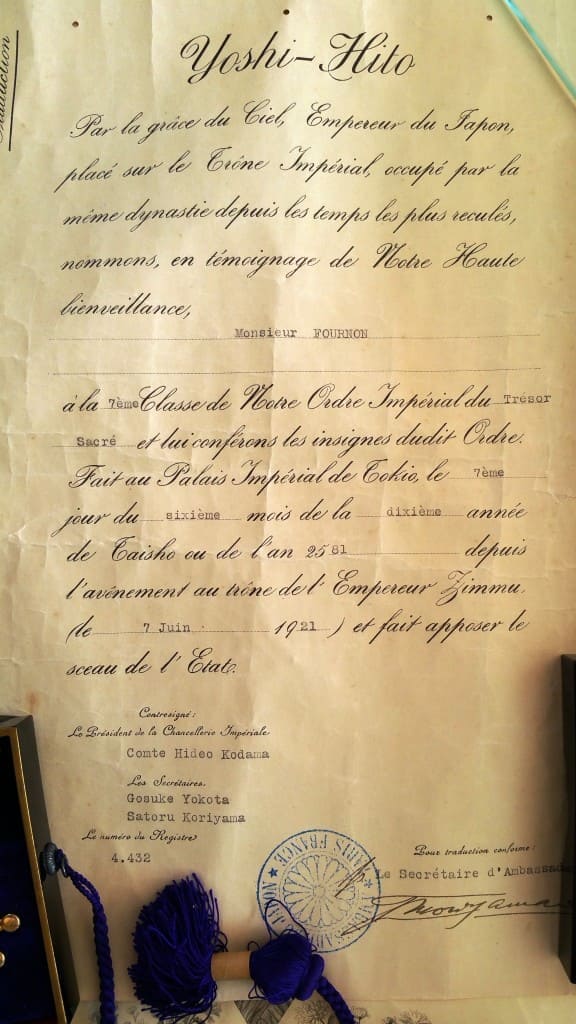 Traduction
Yoshi-Hito
Par la grâce du Ciel, Empereur du Japon,
placé sur le Trône Impérial, occupé par la
même dynastie depuis les temps les plus reculés,
nommons, en témoignage de Notre Haute
bienveillance,
Monsieur FOURNON
à la 7ème Classe de Notre Ordre Impérial du Trésor
Sacré et lui conférons les insignes dudit Ordre.
Fait au Palais Impérial de Tokio, le 7ème
jour du sixième mois de la dixième année
de Taisho ou de l'an 2581 depuis
l'avénement au trône de l'Empereur Zimmu.
(le 7 Juin 1921) et fait apposer le
sceau de l'Etat.
Contresigné:
Le Président de la Chancellerie Impériale
Comte Hideo Kodama
Les Secrétaires.
Gosuke Yokota
Satoru Koriyama
Le numéro du Registre
4.432
Pour traduction conforme:
Le Secrétaire d'Ambassade
PARIS FRANCE